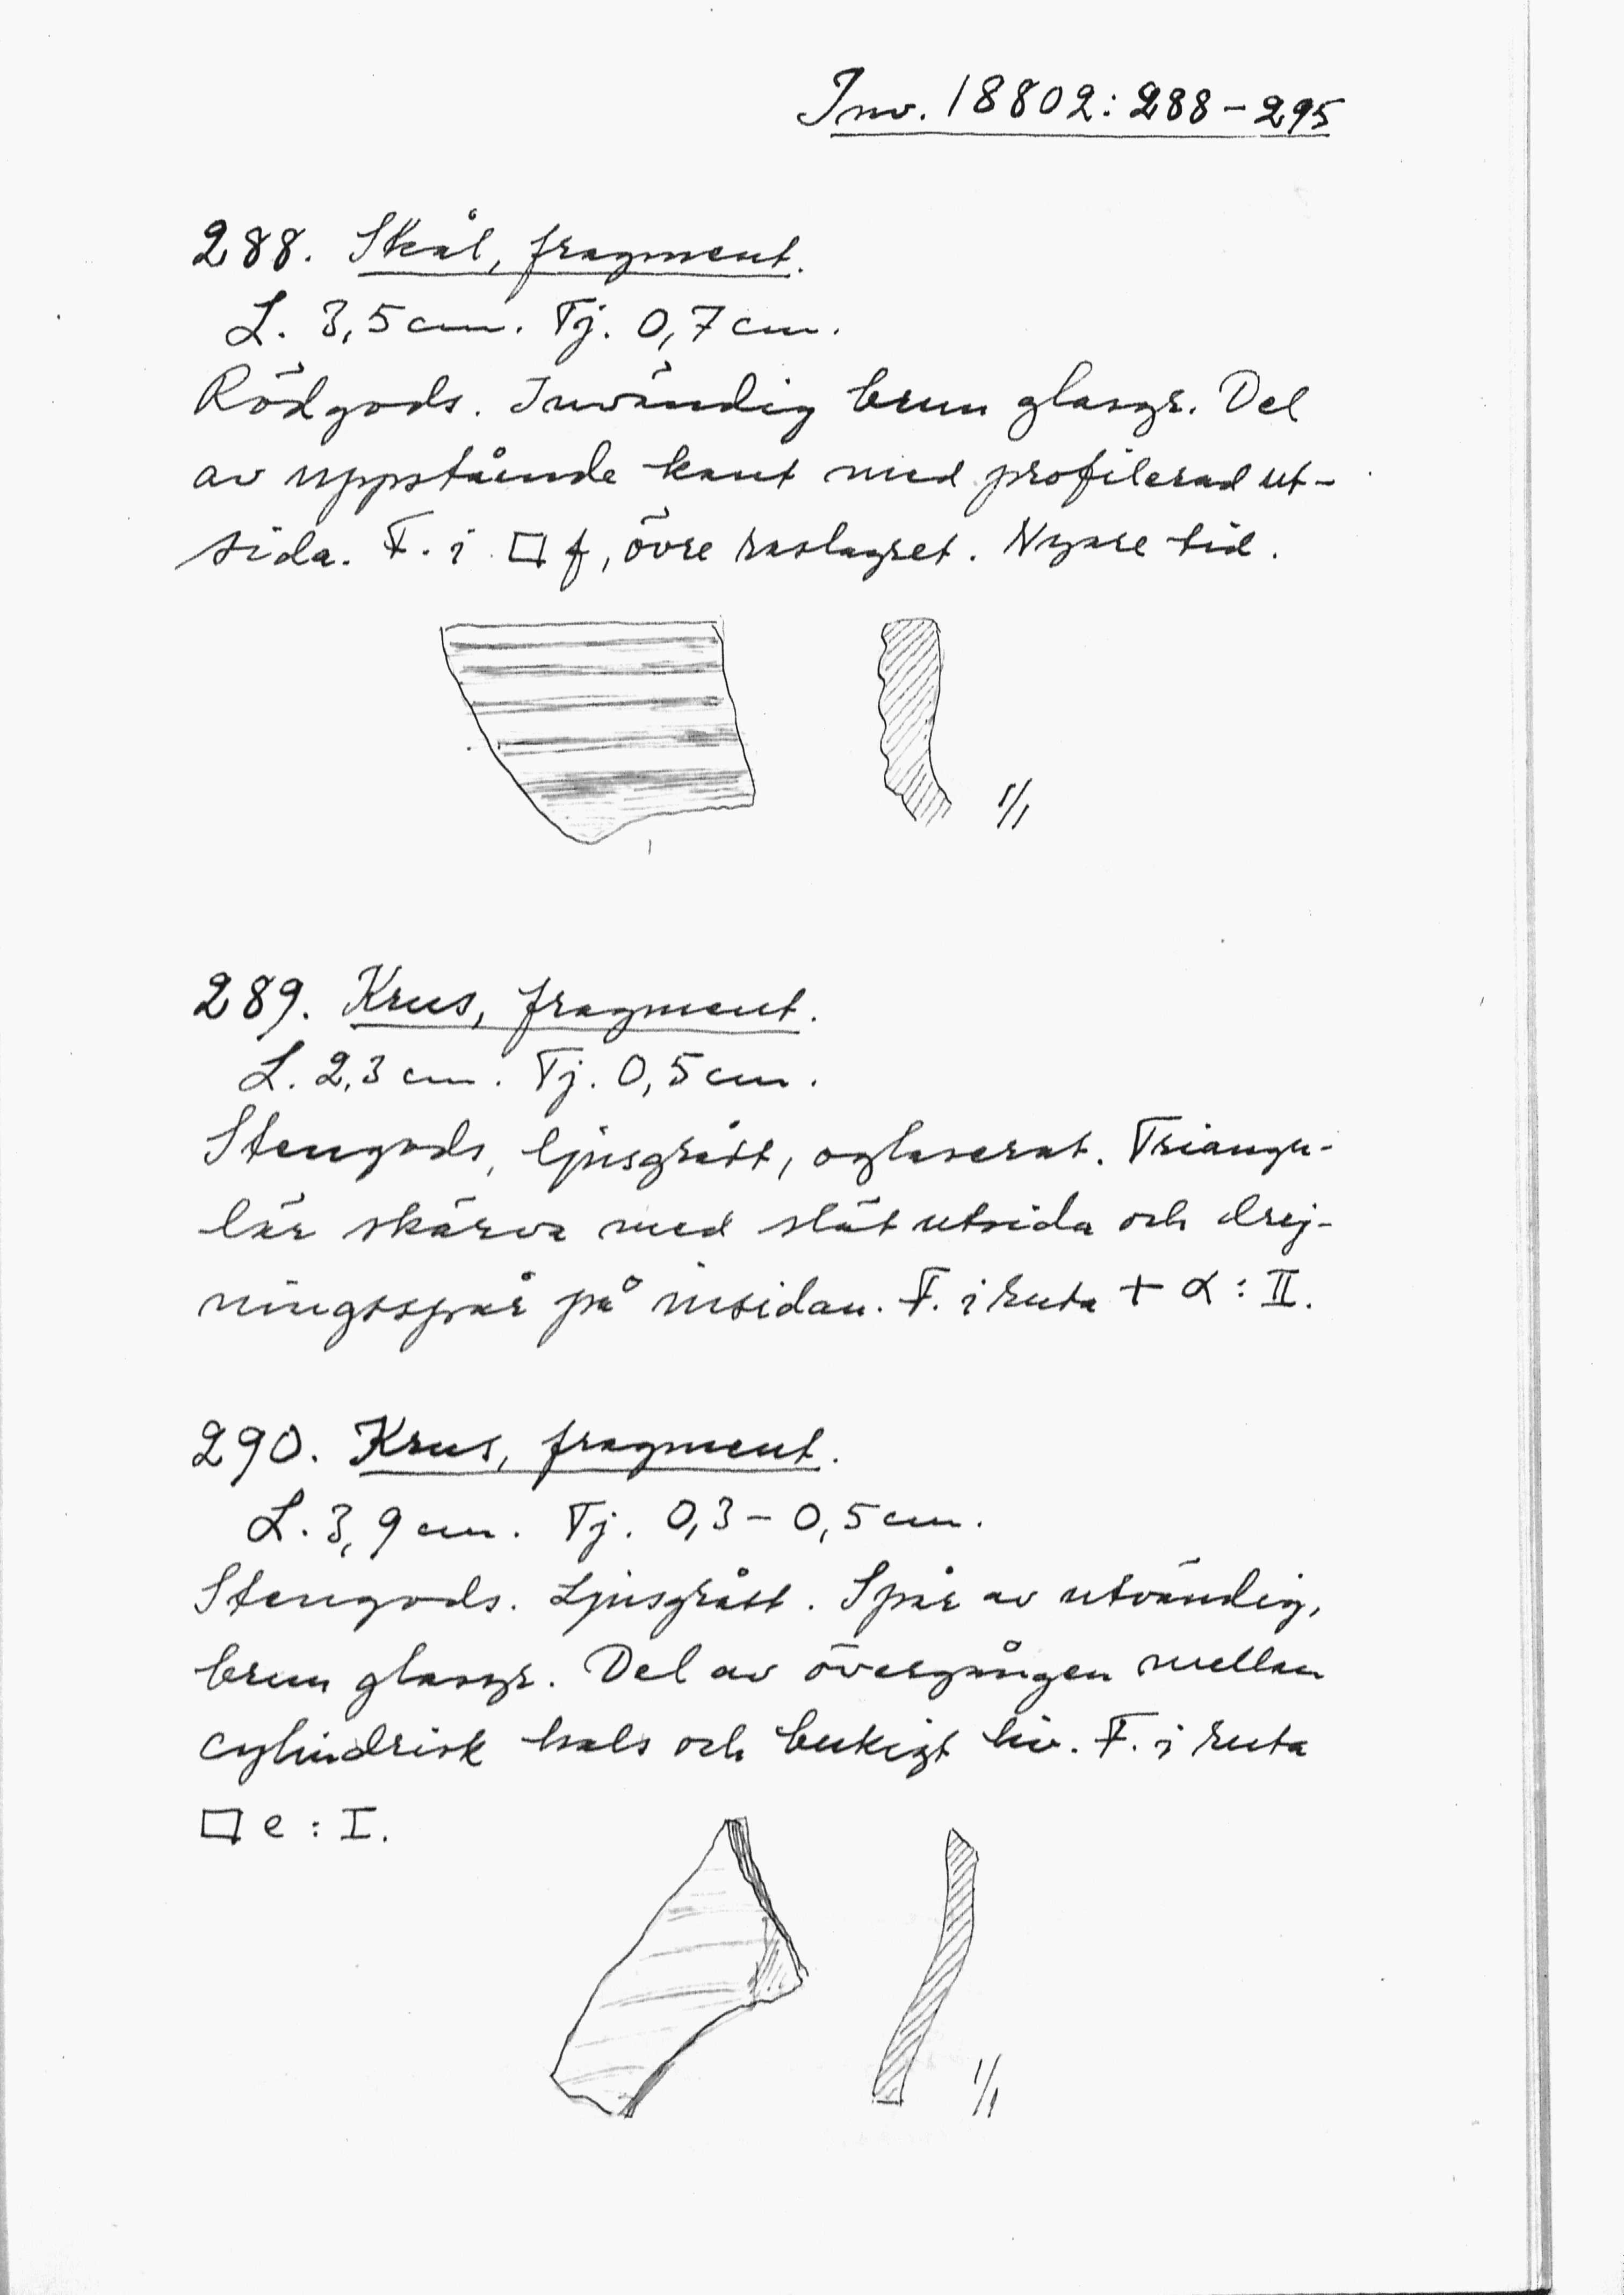 Inv. 18802:288-295
288. Skål, fragment.
L. 3,5 cm. Tj. 0,7 cm.
Rödgods. Invändig brun glasyr. Del
av uppstående kant med profilerad ut-
sida. F. i □ f, övre raslagret. Nyare tid.
1/1
289. Krus, fragment.
L. 2,3 cm. Tj. 0,5 cm.
Stengods, ljusgrått, oglaserat. Triangu-
lär skärva med slät utsida och drej-
ningsspår på insidan. F. i ruta + α: II.
290. Krus, fragment.
L. 3,9 cm. Tj. 0,3-0,5 cm.
Stengods. Ljusgrått. Spår av utvändig,
brun glasyr. Del av övergången mellan
cylindrisk hals och bukigt liv. F. i ruta
□ e : I.
1/1